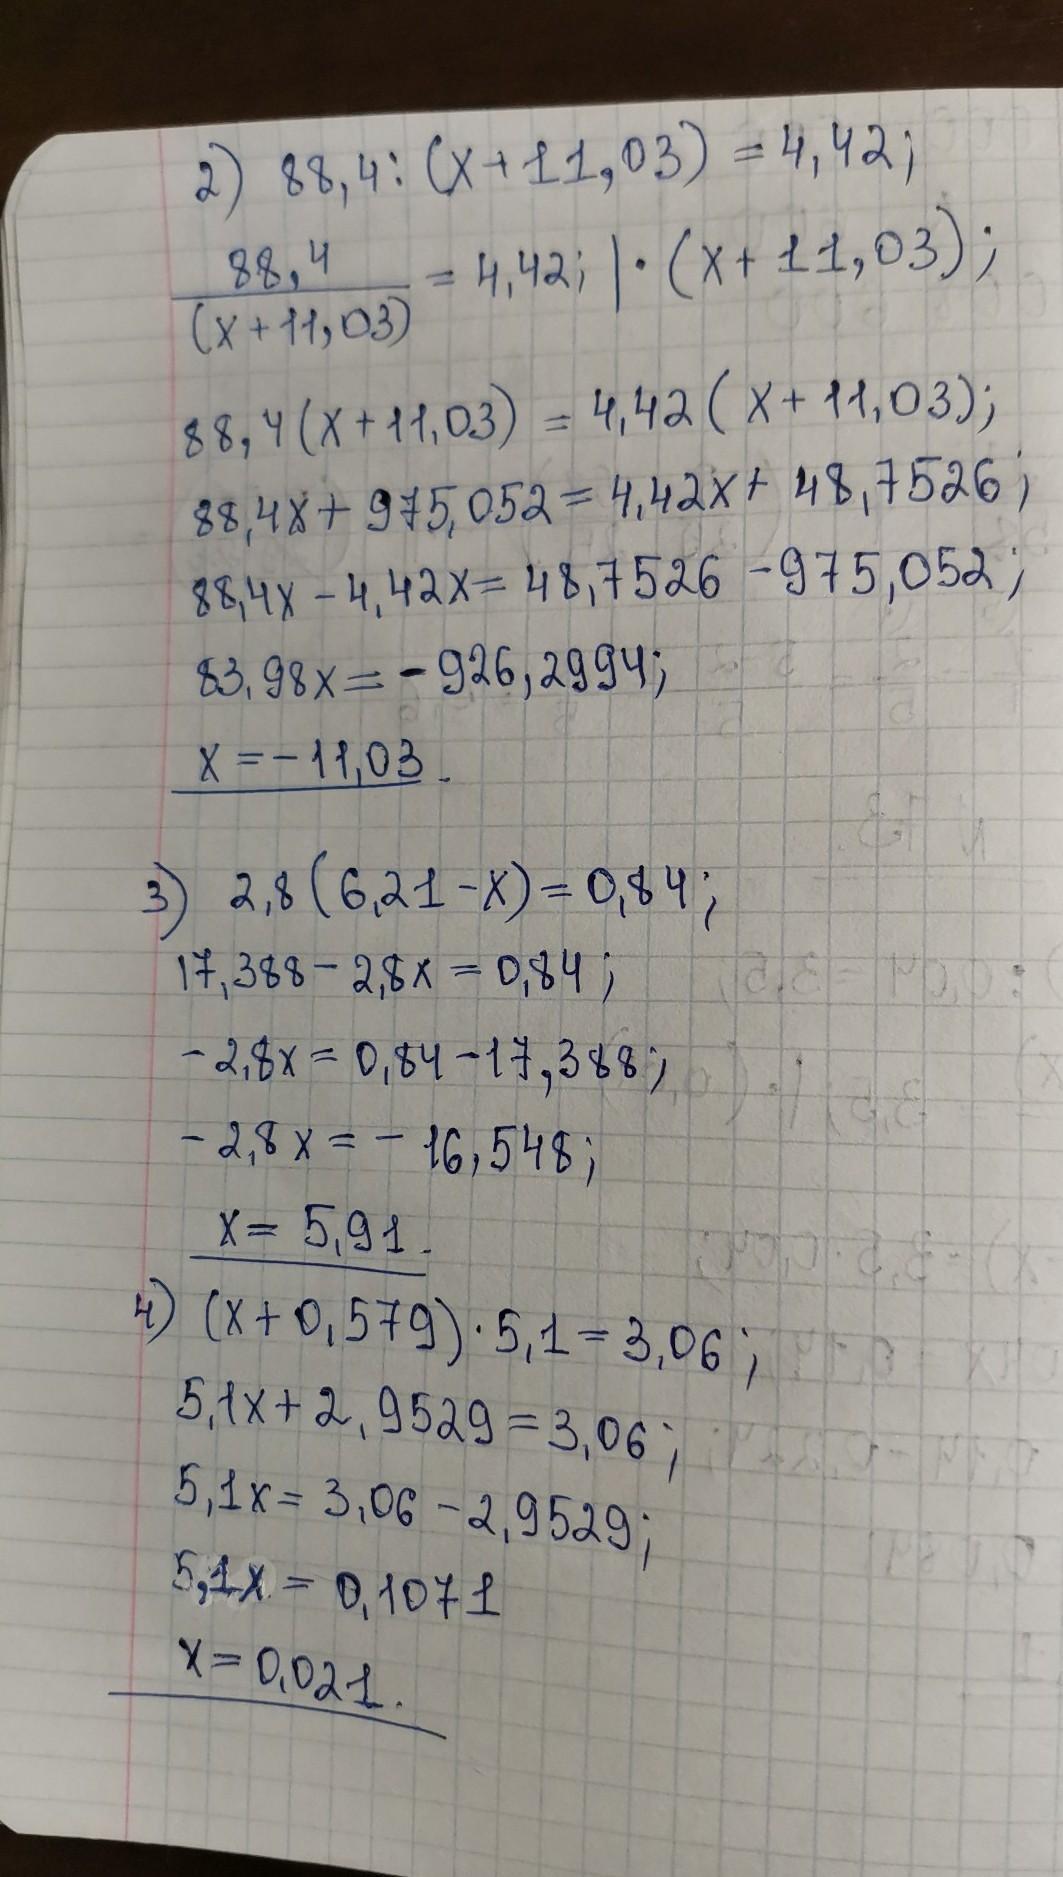 2) 88,4 : (x+11,03) = 4,42;
88,4/(x+11,03) = 4,42; | · (x+11,03);
88,4(x+11,03) = 4,42(x+11,03);
88,4x+975,052=4,42x+48,7526;
88,4x-4,42x=48,7526-975,052;
83,98x=-926,2994;
x=-11,03.
3) 2,8(6,21-x)=0,84;
17,388-2,8x=0,84;
-2,8x=0,84-17,388;
-2,8x=-16,548;
x=5,91.
4) (x+0,579)·5,1=3,06;
5,1x+2,9529=3,06;
5,1x=3,06-2,9529;
5,1x=0,1071
x=0,021.